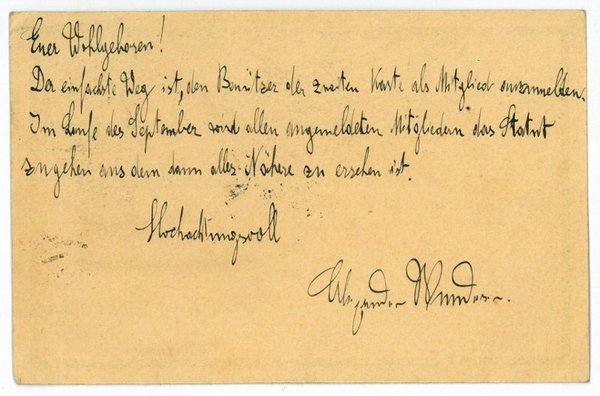 Euer Wohlgeboren!
Der einfachste Weg ist, den Benützer der zweiten Karte als Mitglied anzumelden.
Im Laufe des September wird allen angemeldeten Mitgliedern das Statut
zugehen aus dem dann alles Nähere zu ersehen ist.
Hochachtungsvoll
Alexander Wunderer.